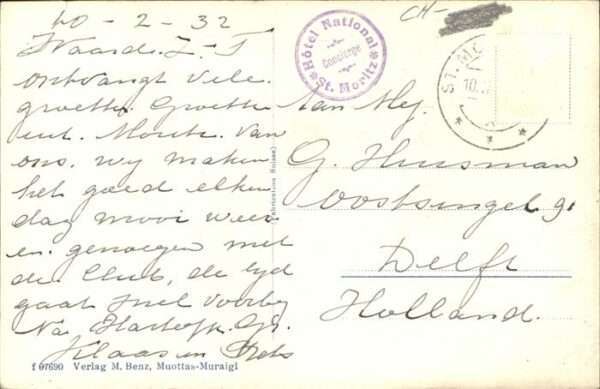 10-2-32
Waarde Z-T
ontvangt vele
groeten Groeten
uit Moritz van
ons. wij maken
het goed elken
dag mooi weer
en genoegen met
de Club, de tijd
gaat snel voorbij
Na Hartelijk Gr.
Klaas en
Hôtel National
Concierge
St. Moritz
CH-
ST. MO
10.
Aan Mej.
G. Huisman
Oostsingel 91
Delft
Holland.
(Fabrication Suisse)
f 07690 Verlag M. Benz, Muottas-Muraigl